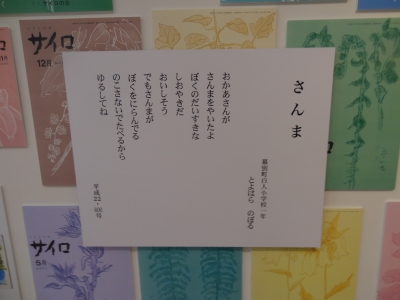 さんま
幕別町白人小学校一年
とよはら のぼる
おかあさんが
さんまをやいたよ
ぼくのだいすきな
しおやきだ
おいしそう
でもさんまが
ぼくをにらんでる
のこさないでたべるから
ゆるしてね
サイロ
12月
サイロ
5月